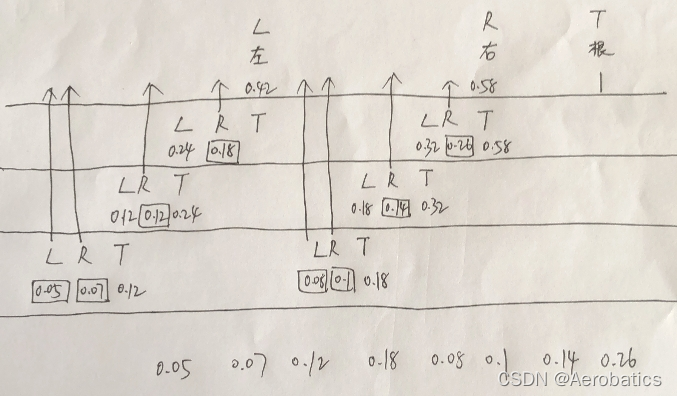 L R T
左 右 根
0.42 0.58 1
L R T L R T
0.24 0.18 0.32 0.26 0.58
L R T L R T
0.12 0.12 0.24 0.18 0.14 0.32
L R T L R T
0.05 0.07 0.12 0.08 0.1 0.18
0.05 0.07 0.12 0.18 0.08 0.1 0.14 0.26
CSDN @Aerobatics